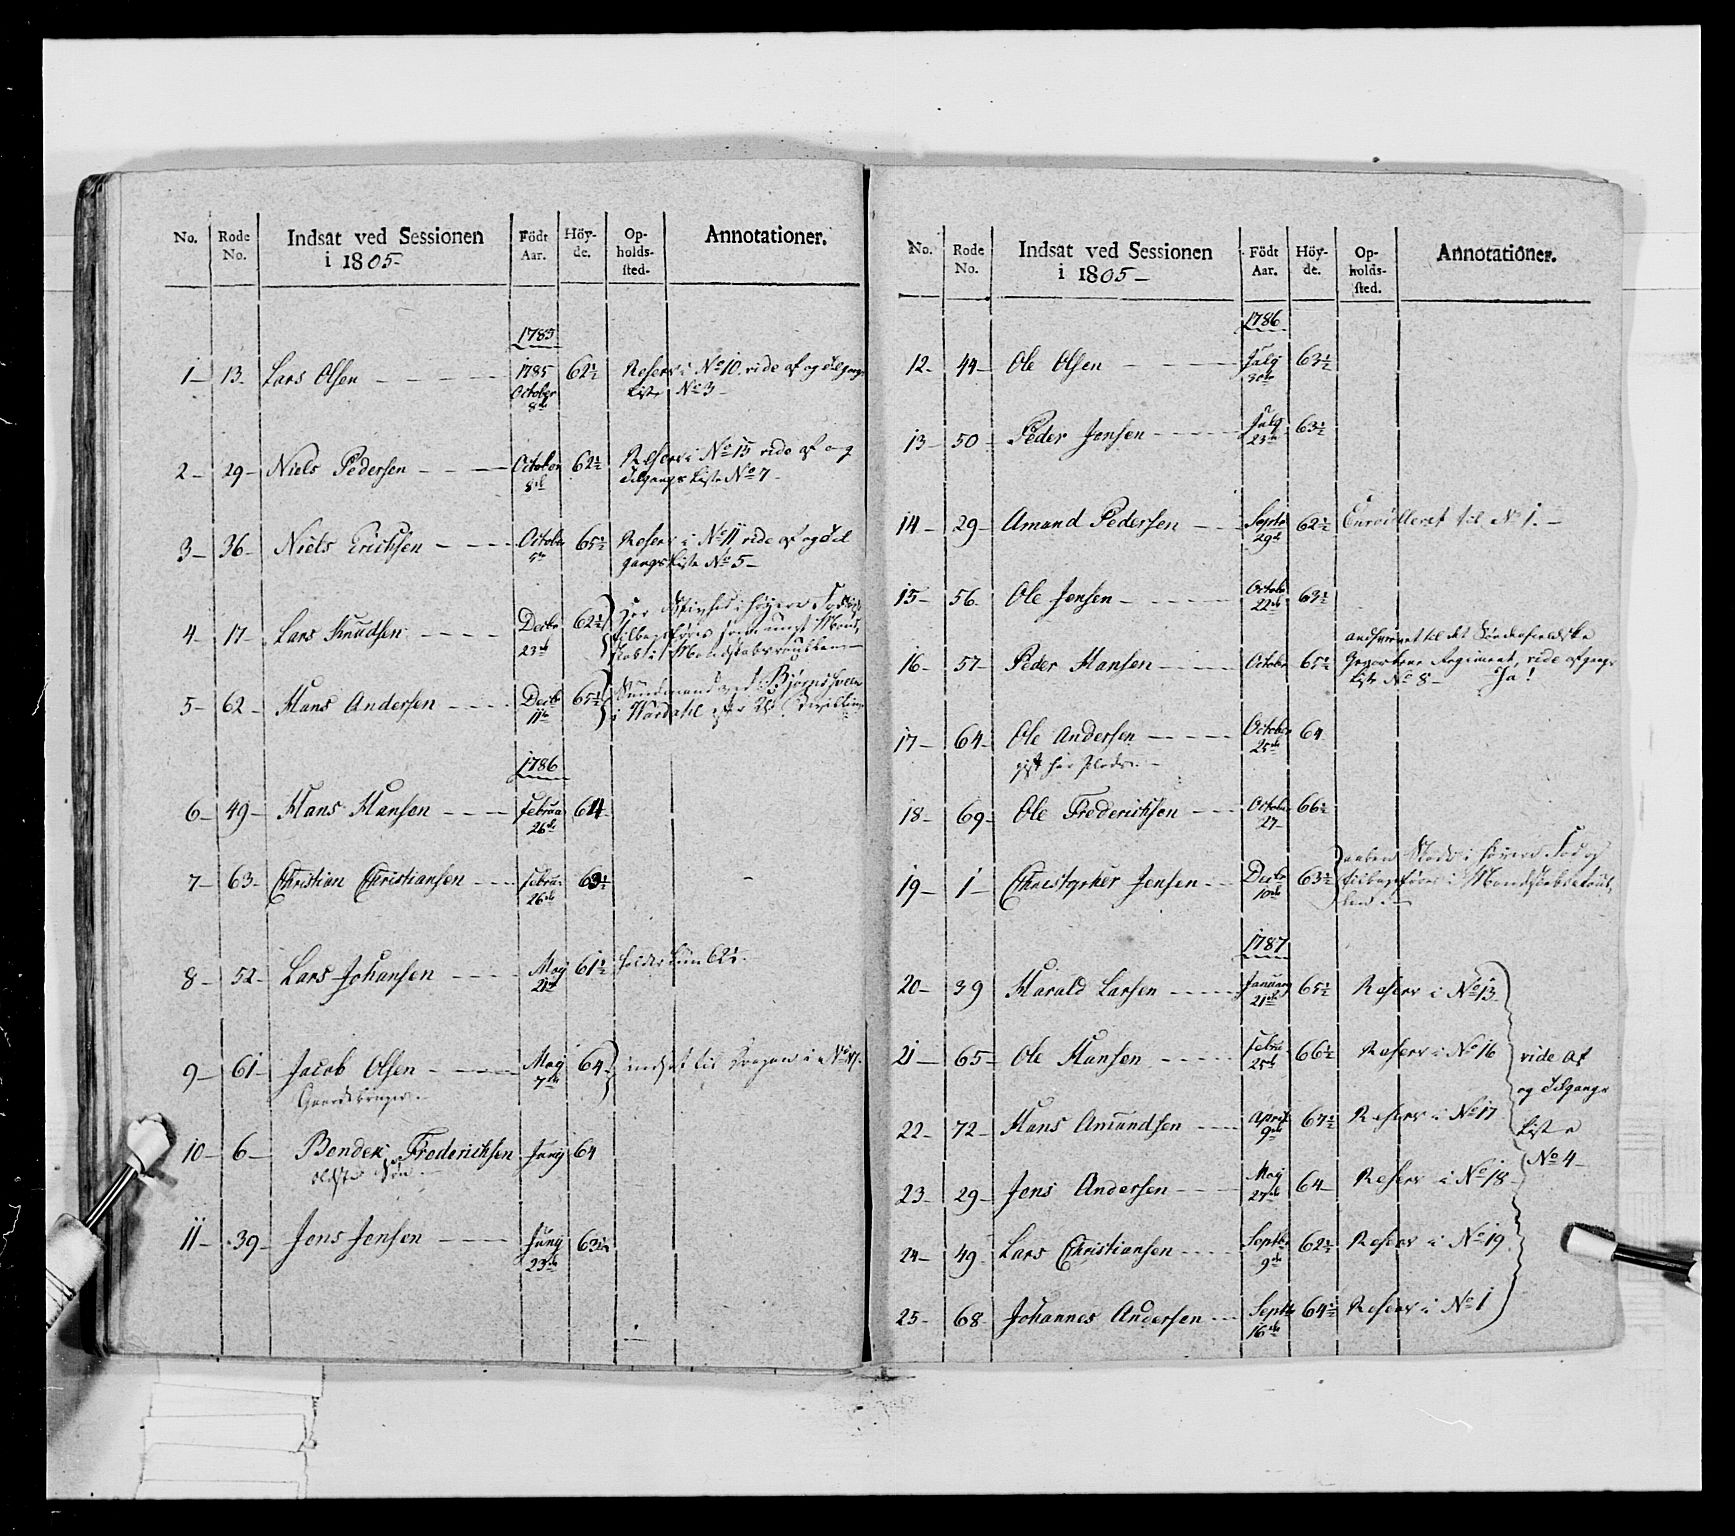 No. Rode No. Indsat ved Sessionen i 1805- Födt Aar. Höy-de. Op-holds-sted. Annotationer.
1783
1- 13- Lars Olsen 1785 October 8de 62½ Reserv i No 10. vide af og Tilgangs Liste No 3-
2- 29- Niels Pedersen October 8de 62½ Reserv i No 15 vide af og Tilgangs Liste No 7-
3- 36- Niels Erichsen October 5te 65½ Reserv i No 11 vide af og Til gangs Liste No 5-
4- 17- Lars Knudsen Decbr 23de 62½ Har Stivhed i høyere
5- 62- Hans Andersen Decbr 11te 65½
1786
6- 49- Hans Hansen Februar 26de 64
7- 63- Christian Christiansen Februar 26de 63½
8- 52- Lars Johansen May 21de 61½ holder 62½.
9- 61- Jacob Olsen May 7de 64 indsat til Dragon i No 41.
Gaardbruger.
10- 6- Bendex Frederichsen Juny 64
oldste Søn.
11- 39- Jens Jensen Juny 23de 63½
No. Rode No. Indsat ved Sessionen i 1805- Födt Aar. Höy-de. Op-holds-sted. Annotationer.
1786
12- 44- Ole Olsen July 30te 63½
13- 50- Peder Jensen July 23de 63½
14- 29- Amund Pedersen Septbr 29de 62½ Enroulleret til No 1.-
15- 56- Ole Jensen Octobr 22de 63½
16- 57- Peder Hansen October 65½ til det Søndenfieldske Regiment, vide afgangs Liste No 8- Ja!
17- 64- Ole Andersen October 25de 64
gift
18- 69- Ole Frederichsen October 27- 66½
19- 1- Christopher Jensen Decbr 10de 63½ aaben i høyere Fod og
1787
20- 39 Harald Larsen January 21de 65½ Reserv i No 13
21- 65- Ole Hansen Februar 25de 66½ Reserv i No 16 vide af
og Tilgangs
22- 72- Hans Amundsen April 9de 67½ Reserv i No 17 Liste
No 4-
23- 29- Jens Andersen May 27de 64 Reserv i No 18-
24- 49- Lars Christiansen Septbr 9de 62½ Reserv i No 19
25- 68- Johannes Andersen Septbr 16de 64½ Reserv i No 1